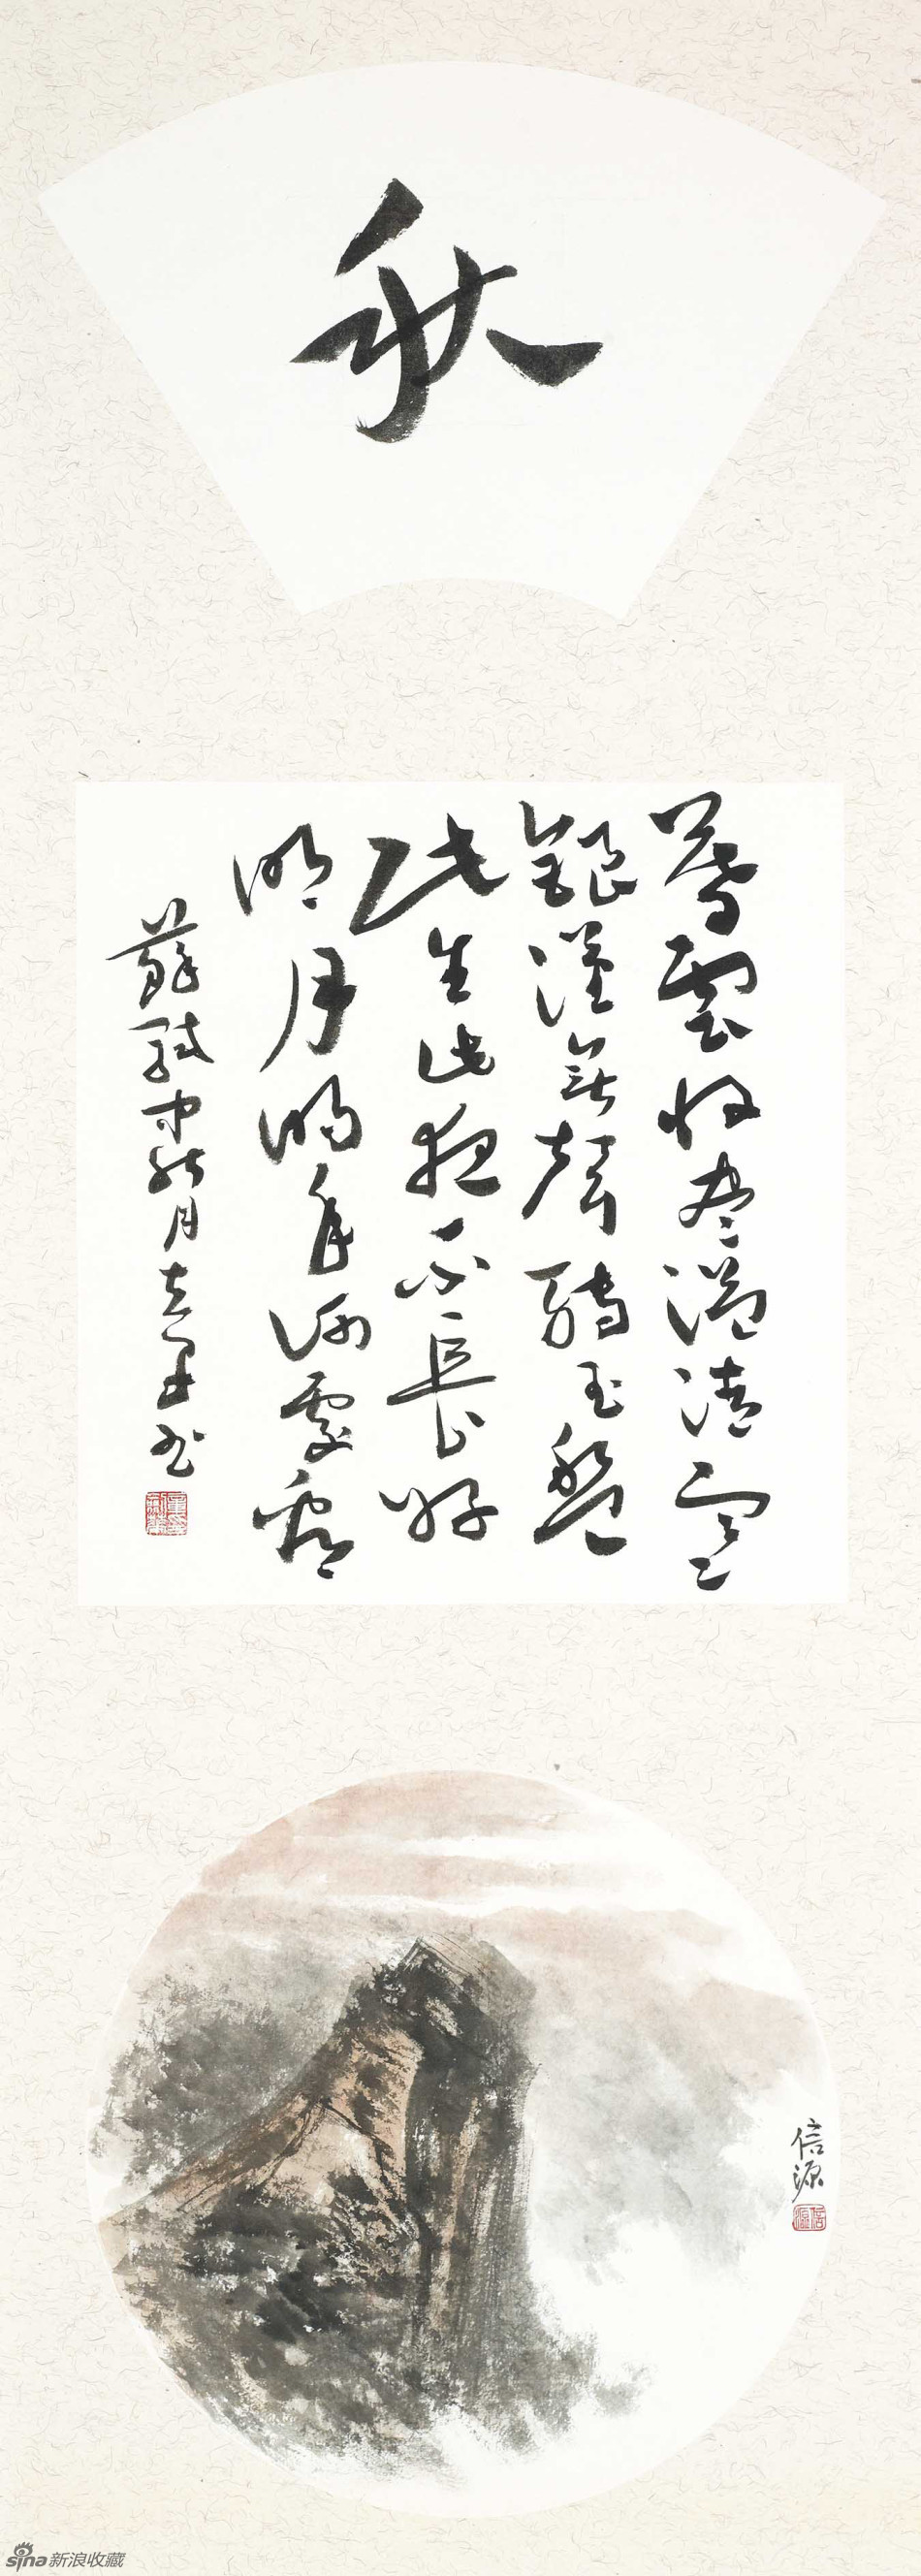 秋
暮雲收盡溢清寒
銀漢無聲轉玉盤
此生此夜不長好
明月明年何處看
蘇軾中秋月
信源
sina新浪收藏